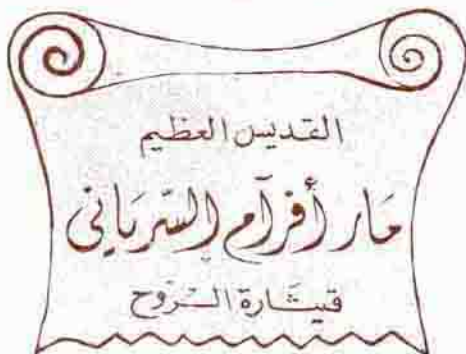 القديس العظيم
مَار أفرآم السّريَانى
قيثارة الرّوح